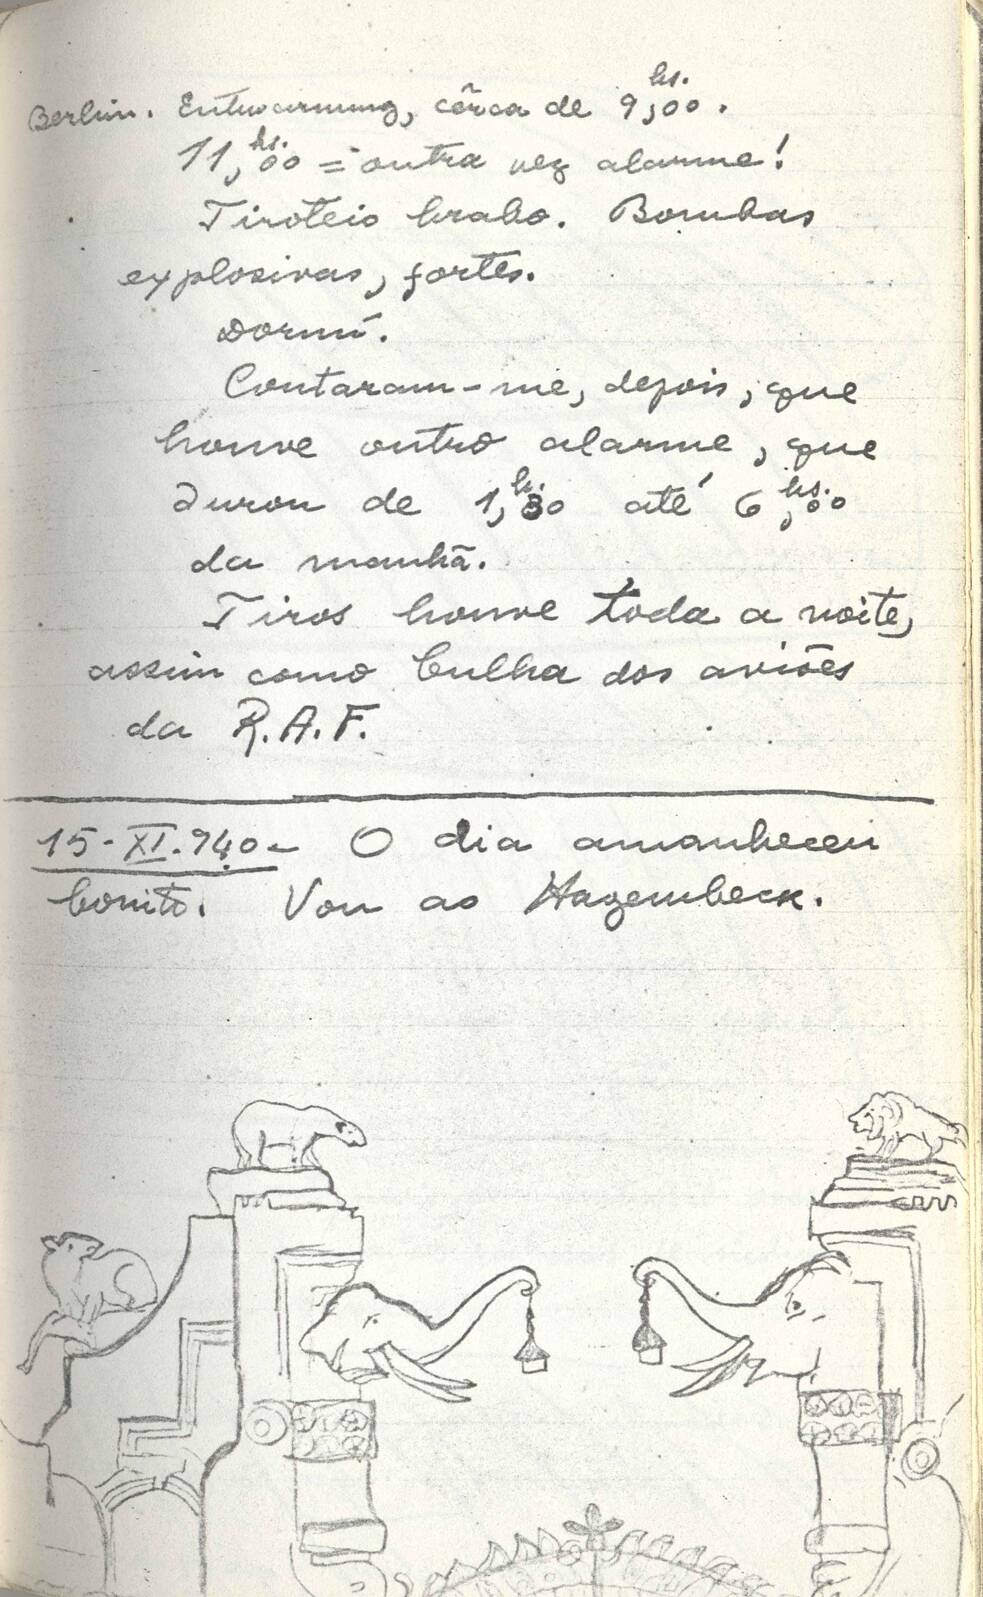 Berlim. Entwarnung, cêrca de 9,hs.00.
11,hs.00 = outra vez alarme!
Tiroteio brabo. Bombas
explosivas, fortes.
Dormí.
Contaram-me, depois, que
houve outro alarme, que
durou de 1,hs.30 até 6,hs.00
da manhã.
Tiros houve toda a noite,
assim como bulha dos aviões
da R.A.F.
15-XI.940- O dia amanheceu
bonito. Vou ao Hagembeck.